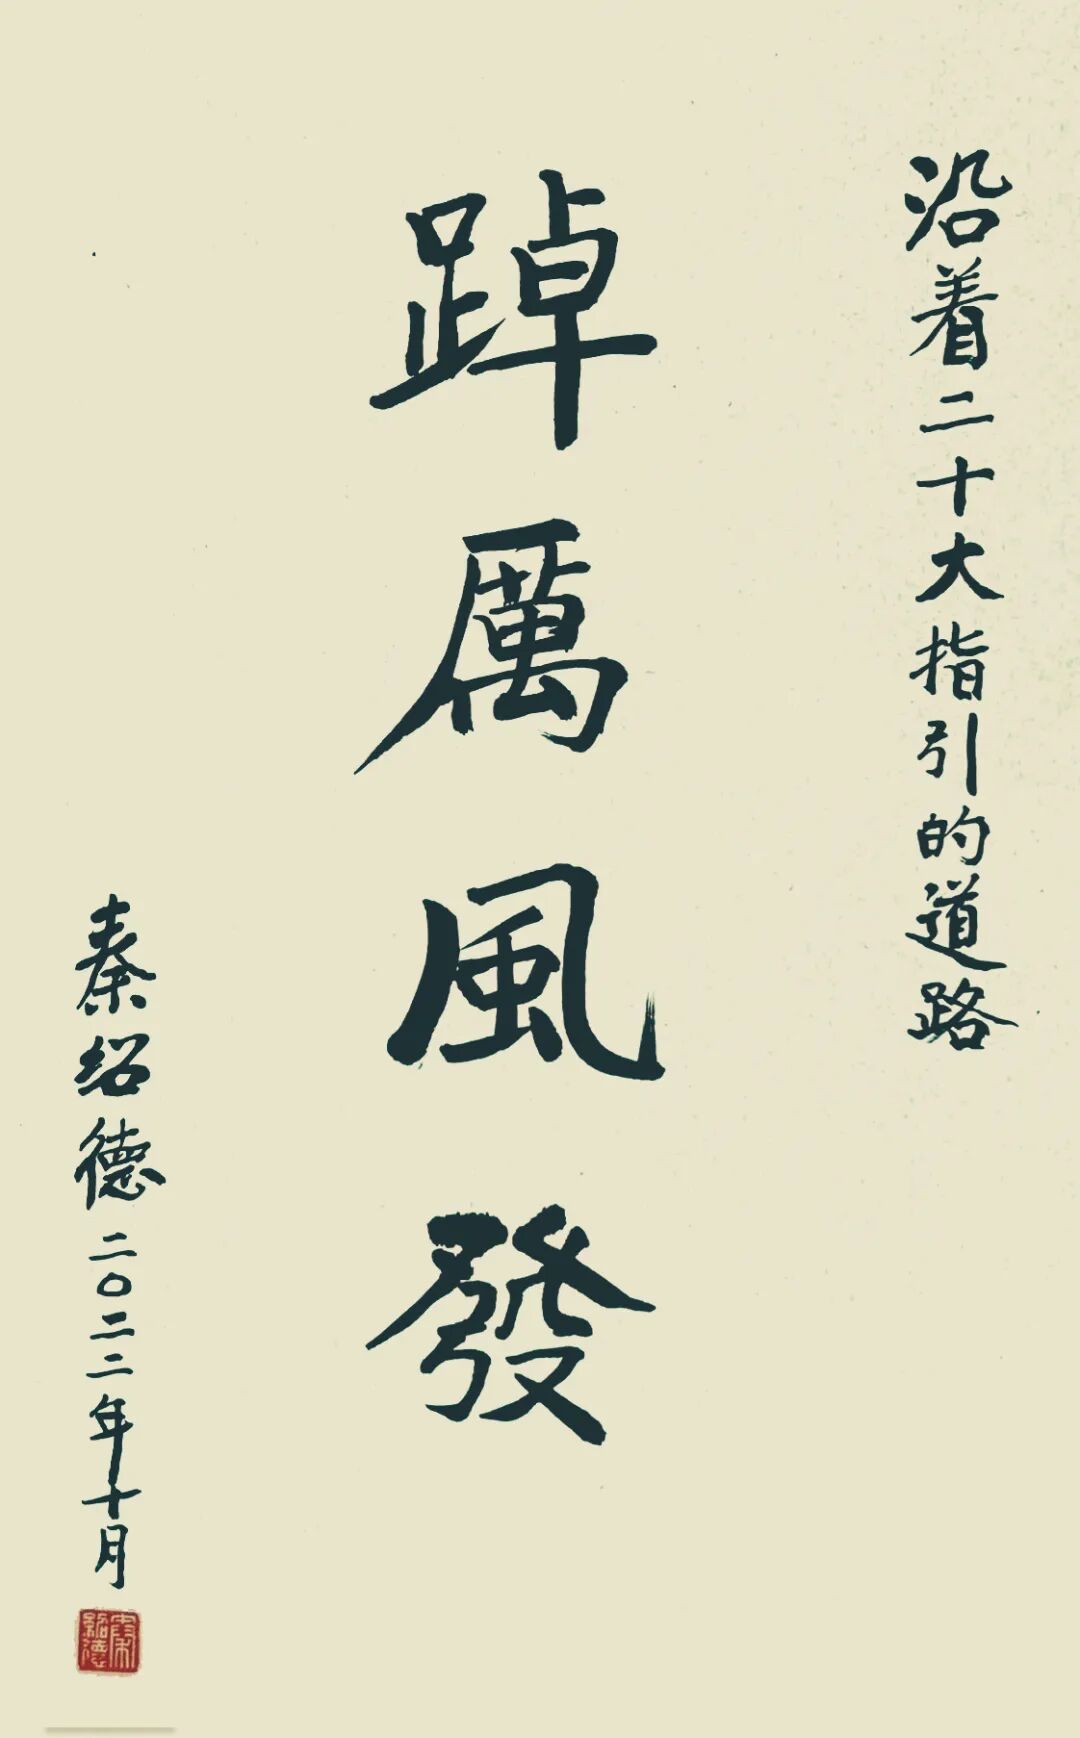 沿着二十大指引的道路
踔厲風發
秦绍德二〇二二年十月
秦紹德